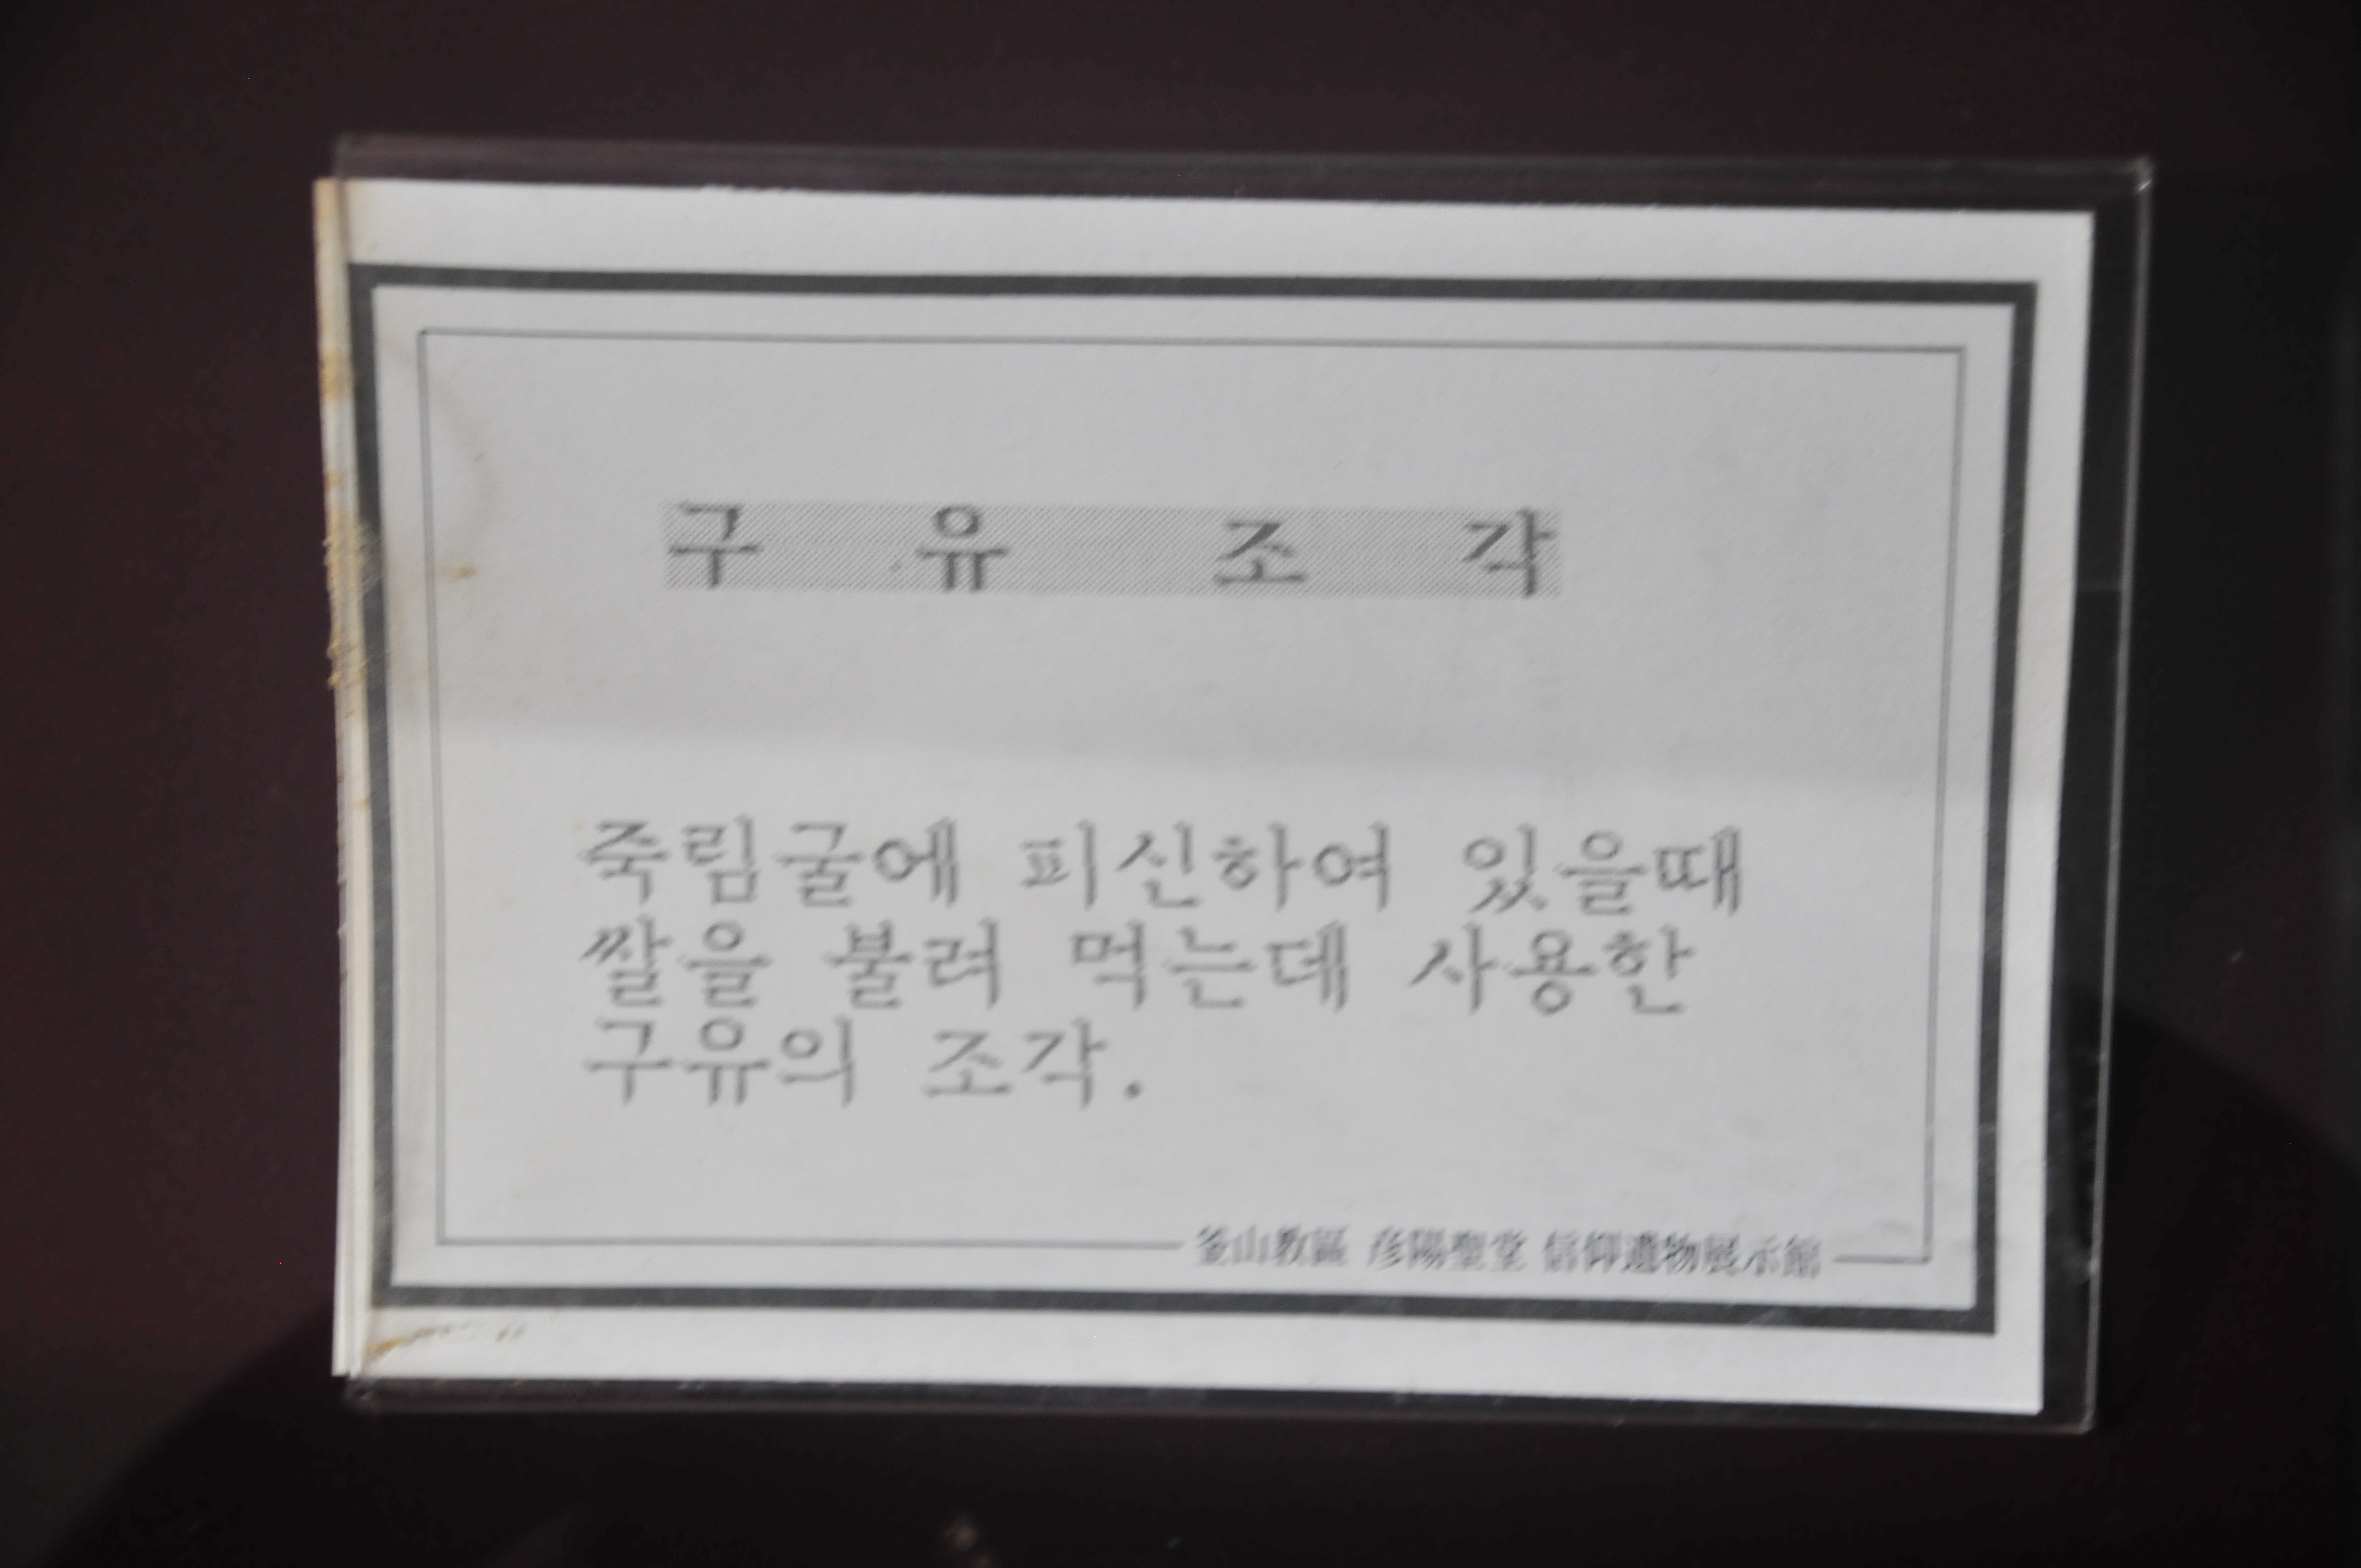 구 유 조 각
죽림굴에 피신하여 있을때
쌀을 불려 먹는데 사용한
구유의 조각.
釜山敎區 彦陽聖堂 信仰遺物展示館